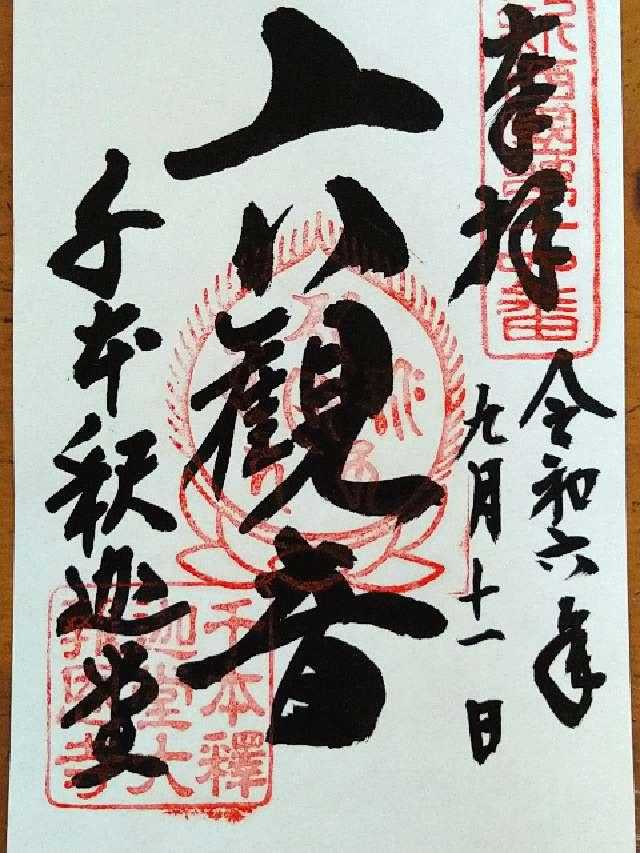 奉拝
令和六年
九月十一日
六観音
千本釈迦堂
千本釋
迦堂大
報恩寺